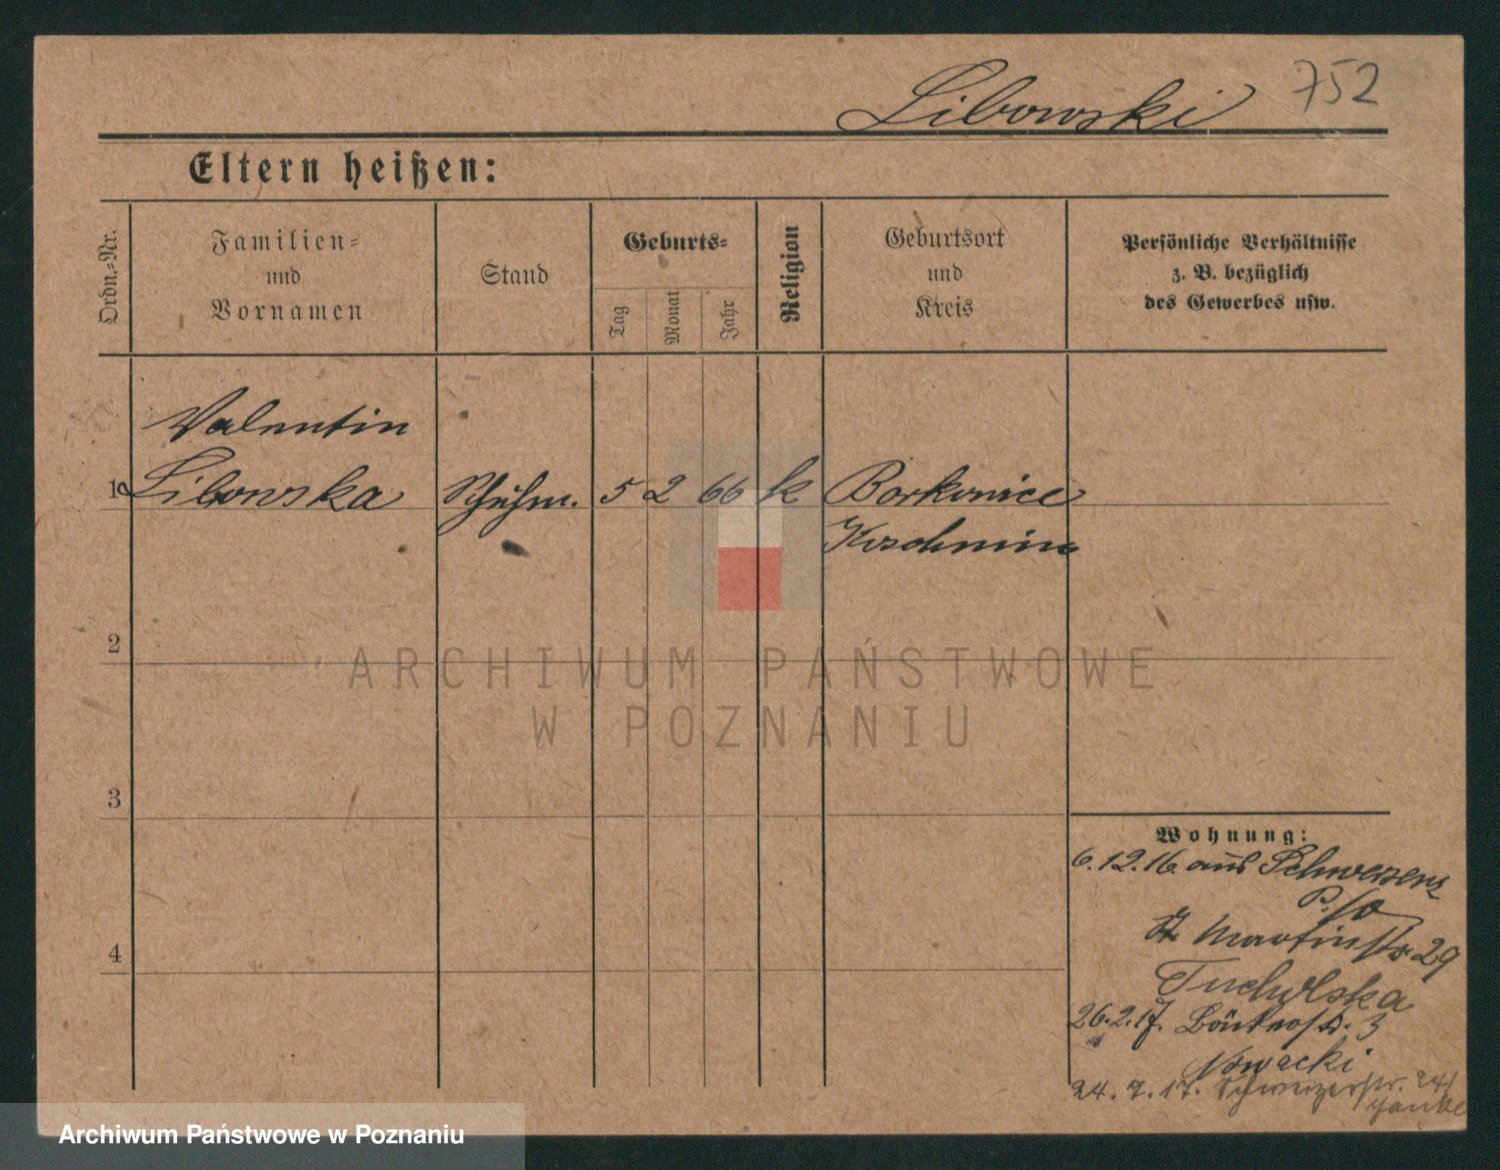 Libowski 752
Eltern heißen:
Ordn.=Nr.
Familien=
und
Vornamen
Stand
Geburts=
Tag
Monat
Jahr
Religion
Geburtsort
und
Kreis
Persönliche Verhältnisse
z. B. bezüglich
des Gewerbes usw.
Valentin
1 Libowska Schuhm. 5 2 66 k Borkowice
2
3
4
Wohnung:
6.12.16 aus Schwersenz
St Martinstr. 29
Tucholska
26.2.17. 3
Nowacki
24. 7. 17. 24/
ARCHIWUM PAŃSTWOWE
W POZNANIU
Archiwum Państwowe w Poznaniu